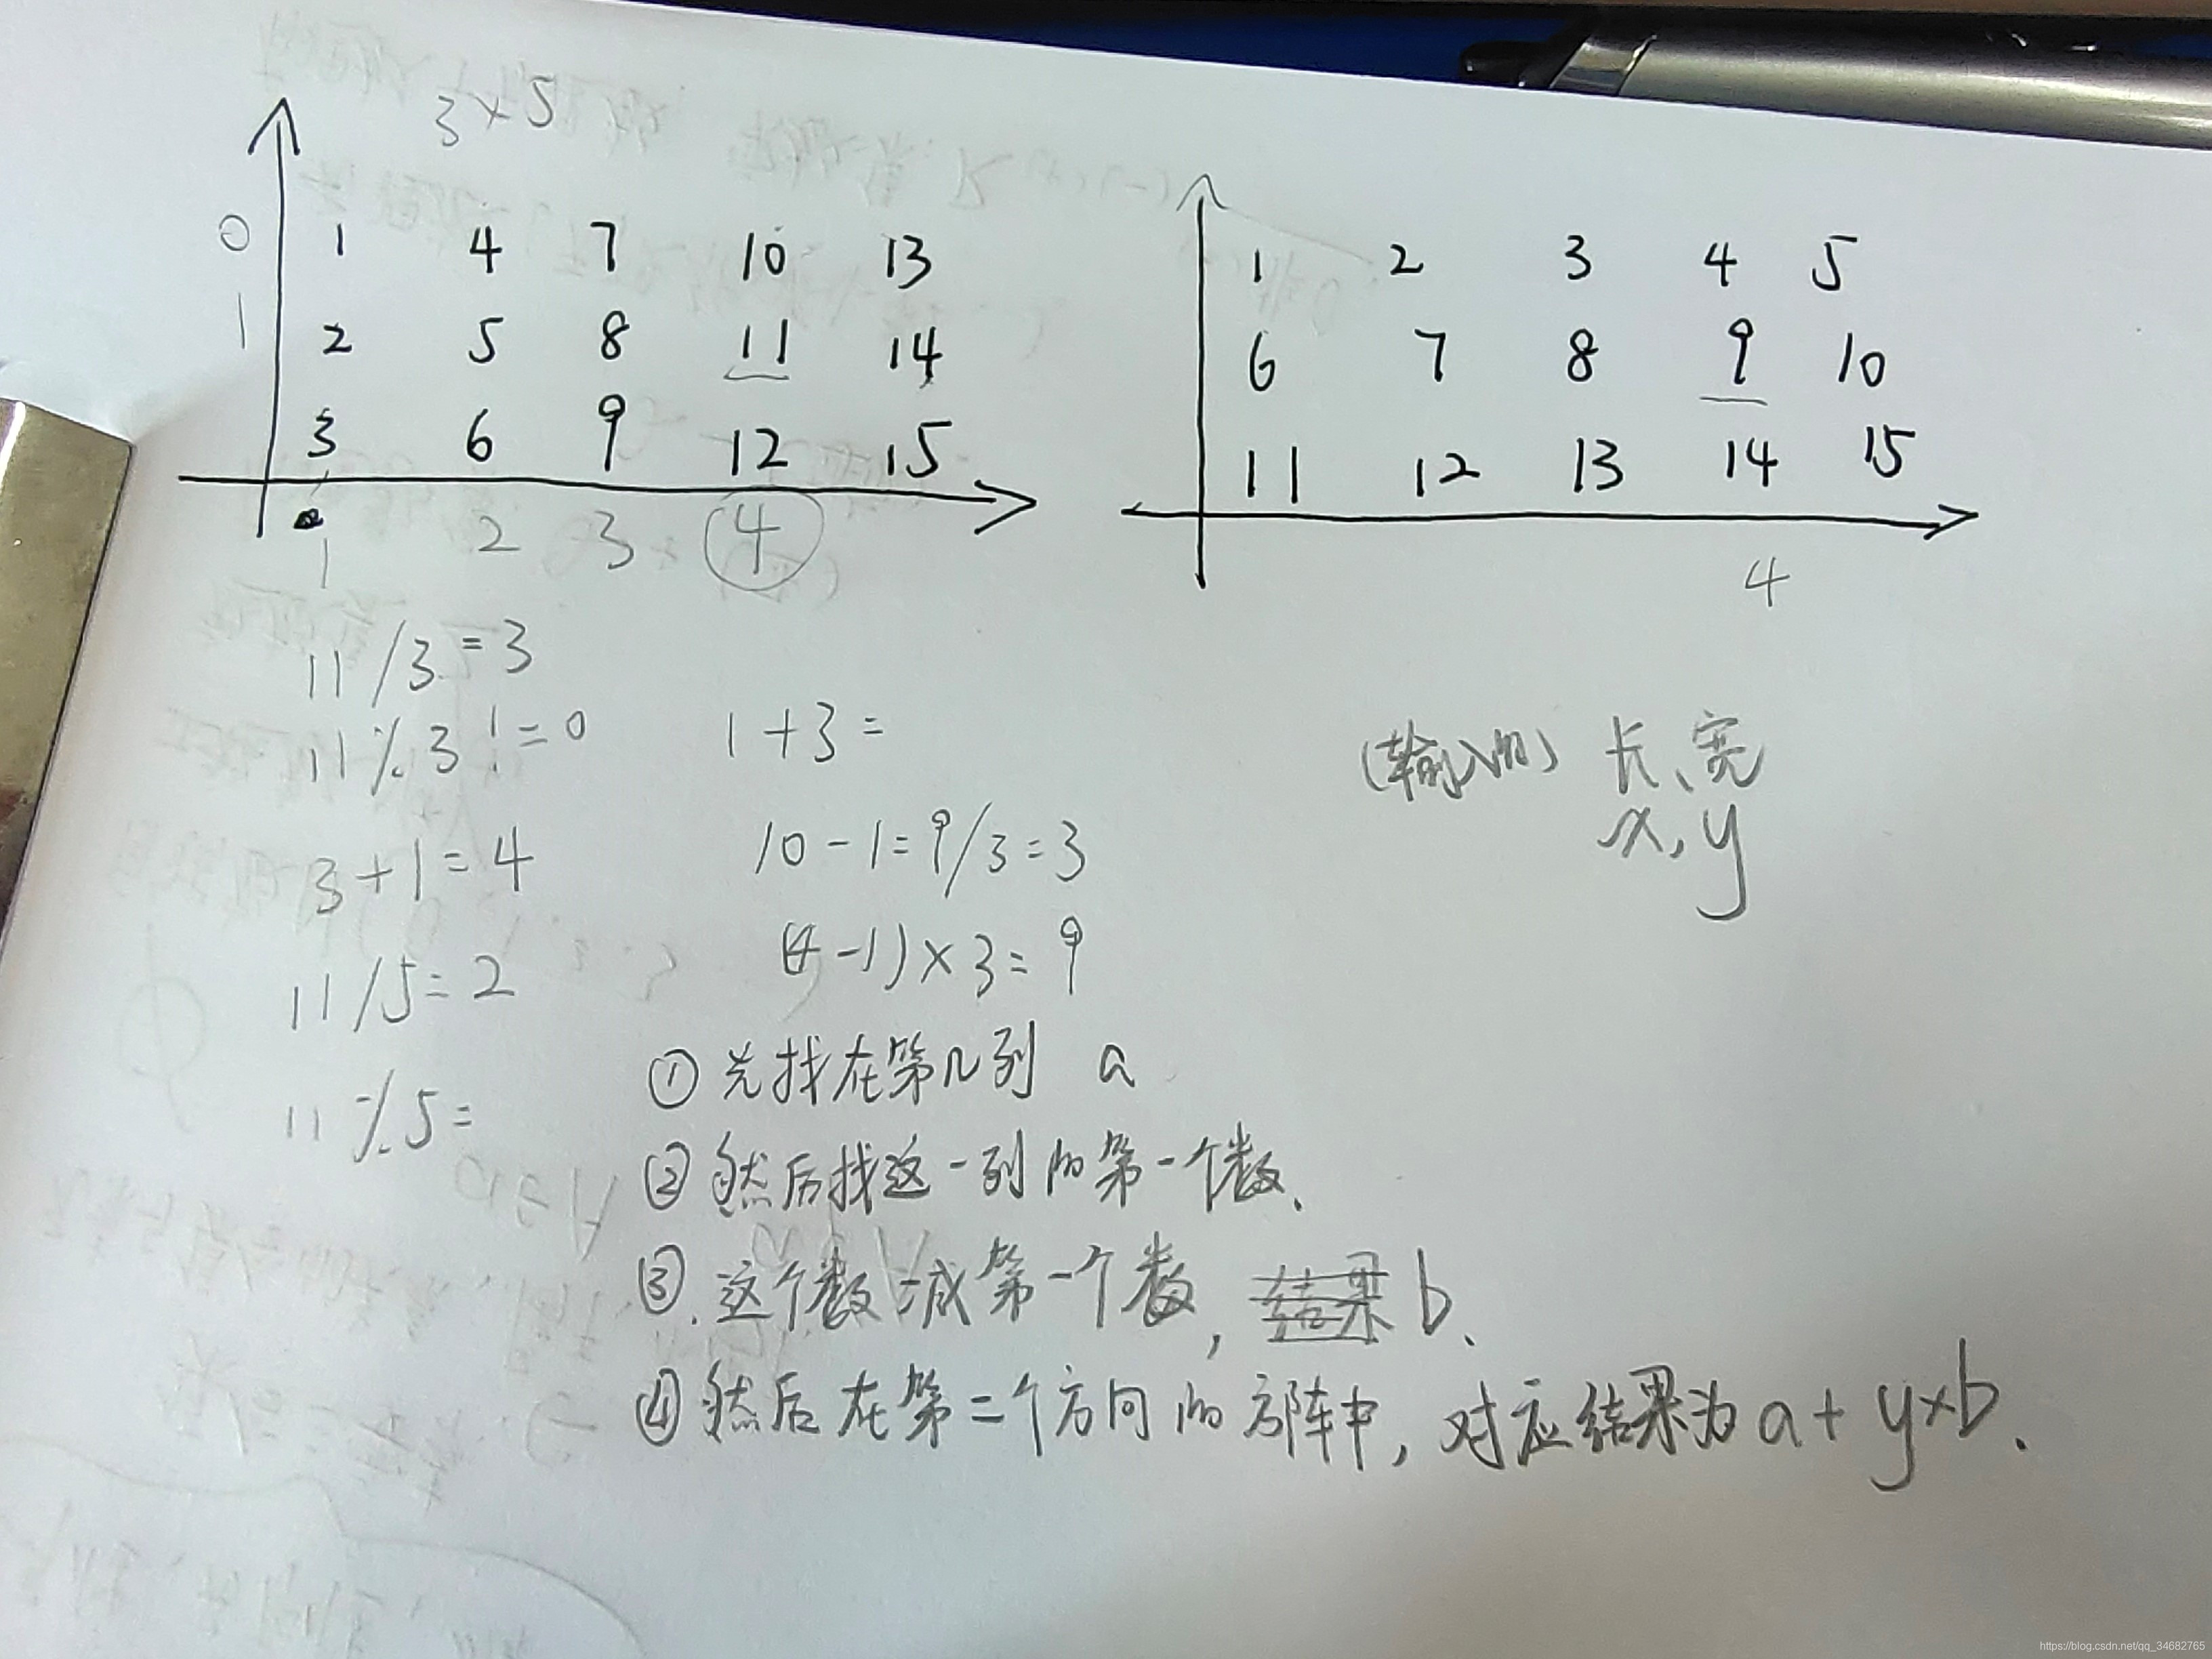 3×5
0 1 4 7 10 13
1 2 5 8 11 14
3 6 9 12 15
1 2 3 4
1 2 3 4 5
6 7 8 9 10
11 12 13 14 15
4
11/3=3
11%3!=0
3+1=4
11/5=2
11%5=
1+3=
10-1=9/3=3
(4-1)×3=9
(输入的) 长、宽
x,y
① 先找在第几列 a
② 然后找这一列的第一个数、
③. 这个数减第一个数, 结果 b、
④ 然后在第二个方向的方阵中, 对应结果为 a+y×b、
https://blog.csdn.net/qq_34682765